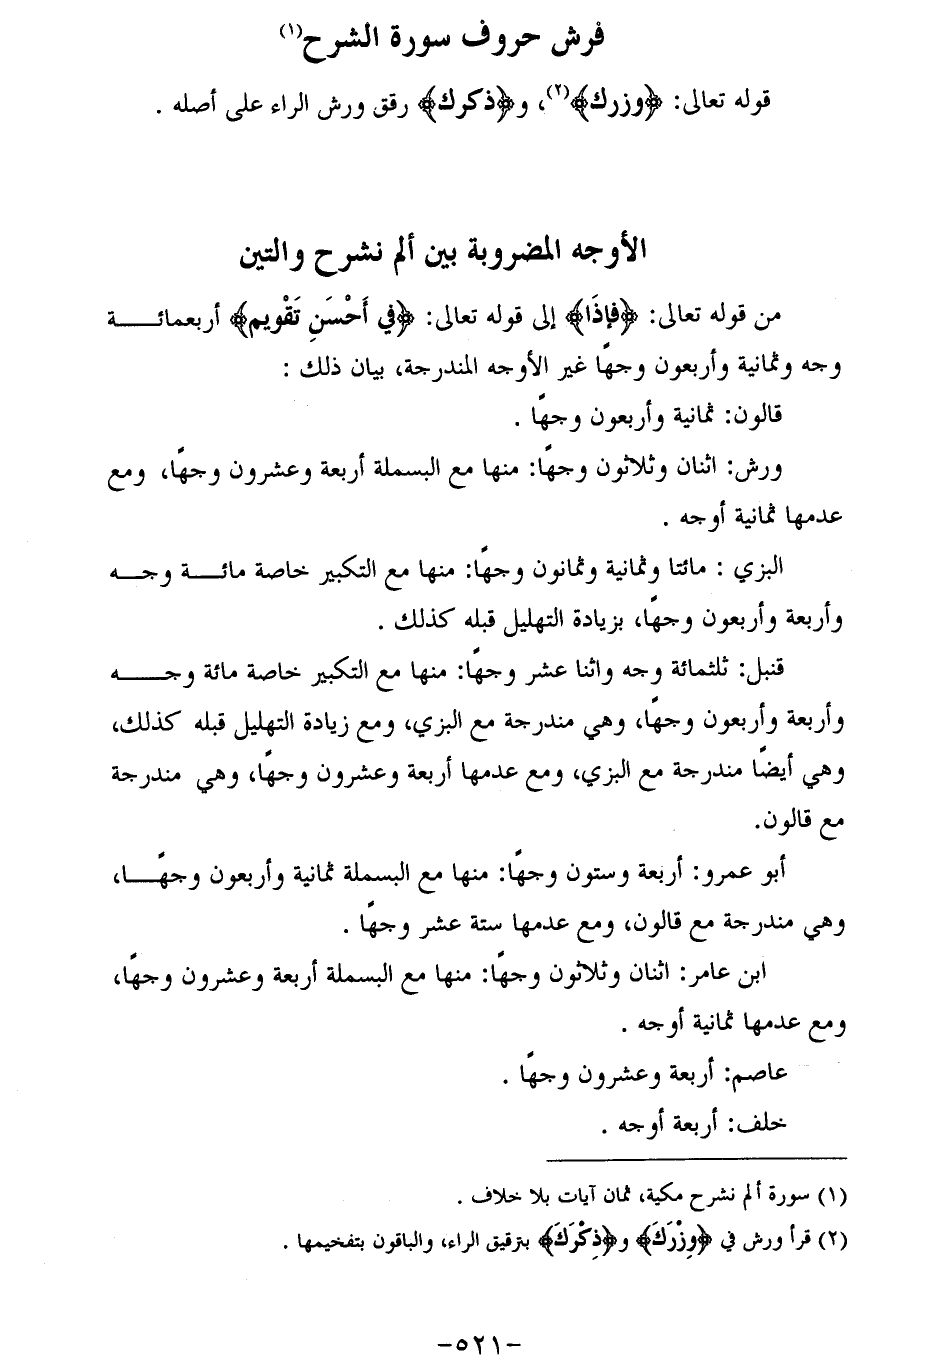 فرش حروف سورة الشرح(١)
قوله تعالى: ﴿وزرك﴾(٢)، و﴿ذكرك﴾ رقق ورش الراء على أصله .
الأوجه المضروبة بين ألم نشرح والتين
من قوله تعالى: ﴿فإذَا﴾ إلى قوله تعالى: ﴿في أَحْسَنِ تَقْويم﴾ أربعمائــة
وجه وثمانية وأربعون وجهًا غير الأوجه المندرجة، بيان ذلك :
قالون: ثمانية وأربعون وجهًا .
ورش: اثنان وثلاثون وجهًا: منها مع البسملة أربعة وعشرون وجهًا، ومع
عدمها ثمانية أوجه .
البزي : مائتا وثمانية وثمانون وجهًا: منها مع التكبير خاصة مائــة وجــه
وأربعة وأربعون وجهًا، بزيادة التهليل قبله كذلك .
قنبل: ثلثمائة وجه واثنا عشر وجهًا: منها مع التكبير خاصة مائة وجــه
وأربعة وأربعون وجهًا، وهي مندرجة مع البزي، ومع زيادة التهليل قبله كذلك،
وهي أيضًا مندرجة مع البزي، ومع عدمها أربعة وعشرون وجهًا، وهي مندرجة
مع قالون.
أبو عمرو: أربعة وستون وجهًا: منها مع البسملة ثمانية وأربعون وجهًــا،
وهي مندرجة مع قالون، ومع عدمها ستة عشر وجهًا .
ابن عامر: اثنان وثلاثون وجهًا: منها مع البسملة أربعة وعشرون وجهًا،
ومع عدمها ثمانية أوجه .
عاصم: أربعة وعشرون وجهًا .
خلف: أربعة أوجه .
(١) سورة ألم نشرح مكية، ثمان آيات بلا خلاف .
(٢) قرأ ورش في ﴿وِزْرَكَ﴾ و﴿ذِكْرَكَ﴾ بترقيق الراء، والباقون بتفخيمها .
-٥٢١-